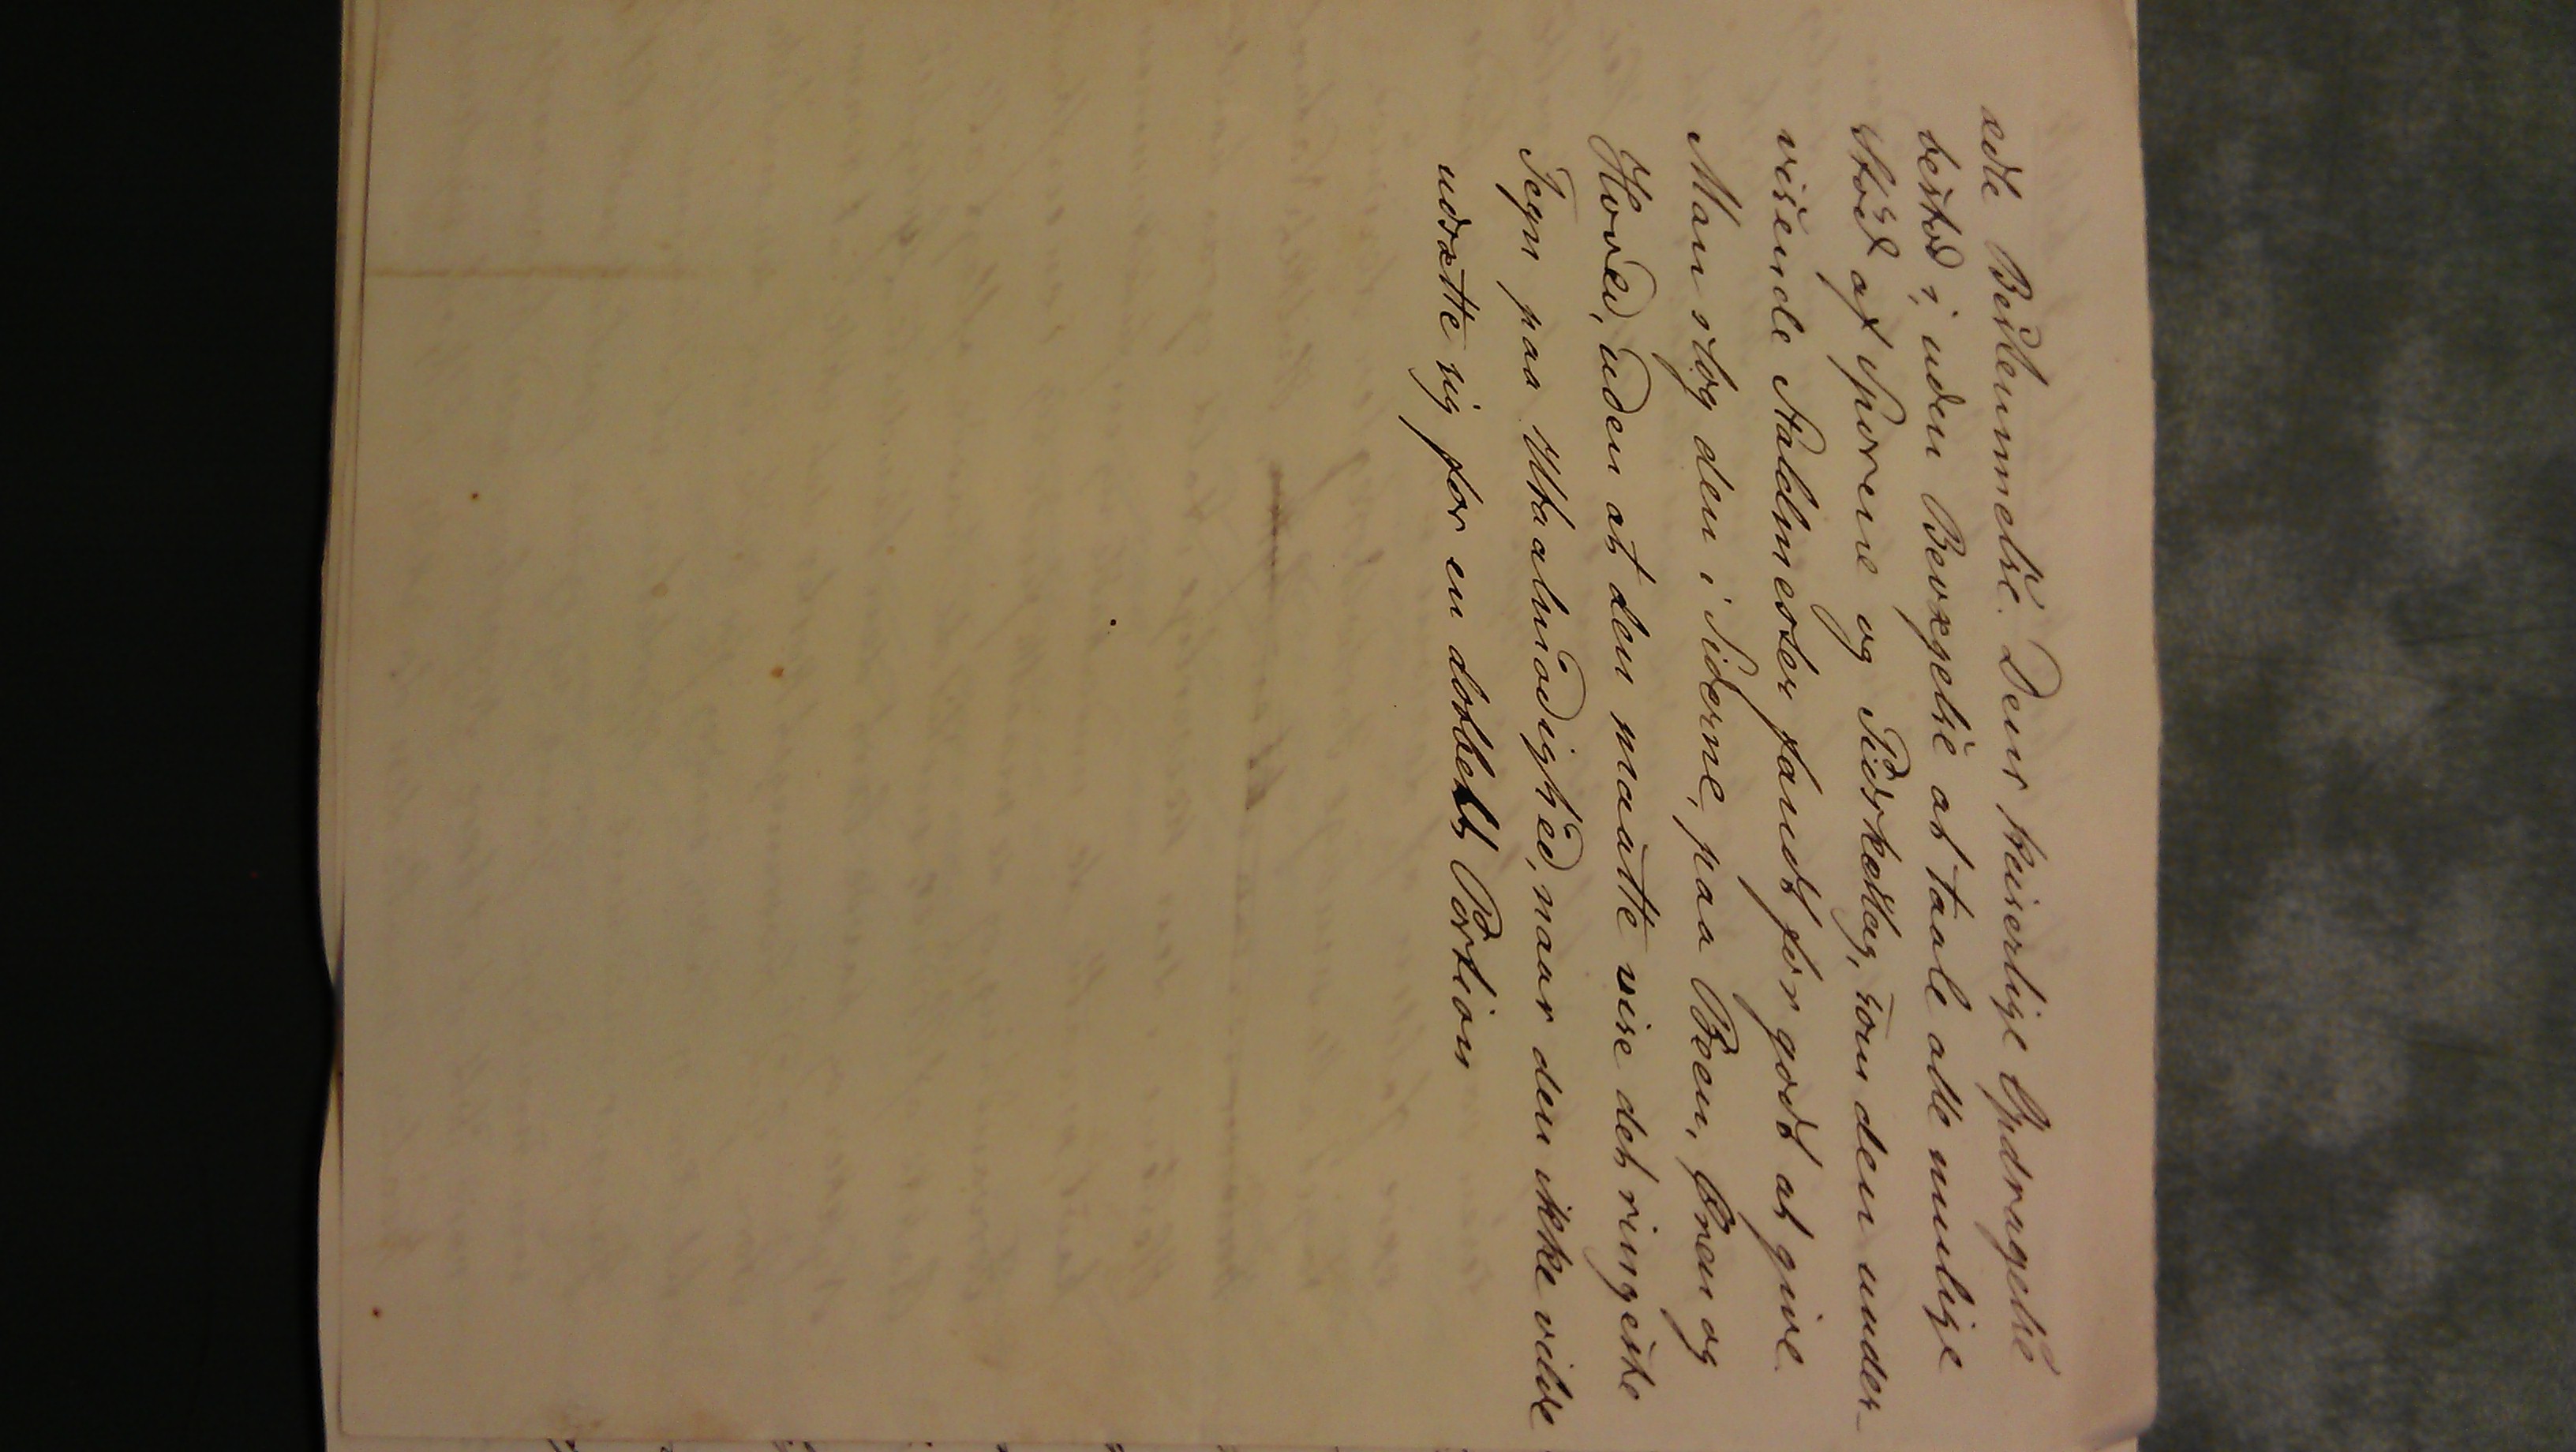 ædle Bestemmelse. Dens keiserlige Opdragelse
bestod i, uden Bevægelse at taale alle mulige
Stød af Sporene og Pidskeslag, som den under-
visende Staldmester fandt for godt at give.
Man slog den i Siderne, paa Been, Bren og
Hoved, uden at den maatte vise det ringeste
Tegn paa Utaalmodighed, naar den ikke vilde
udsætte sig for en dobbelt Portion